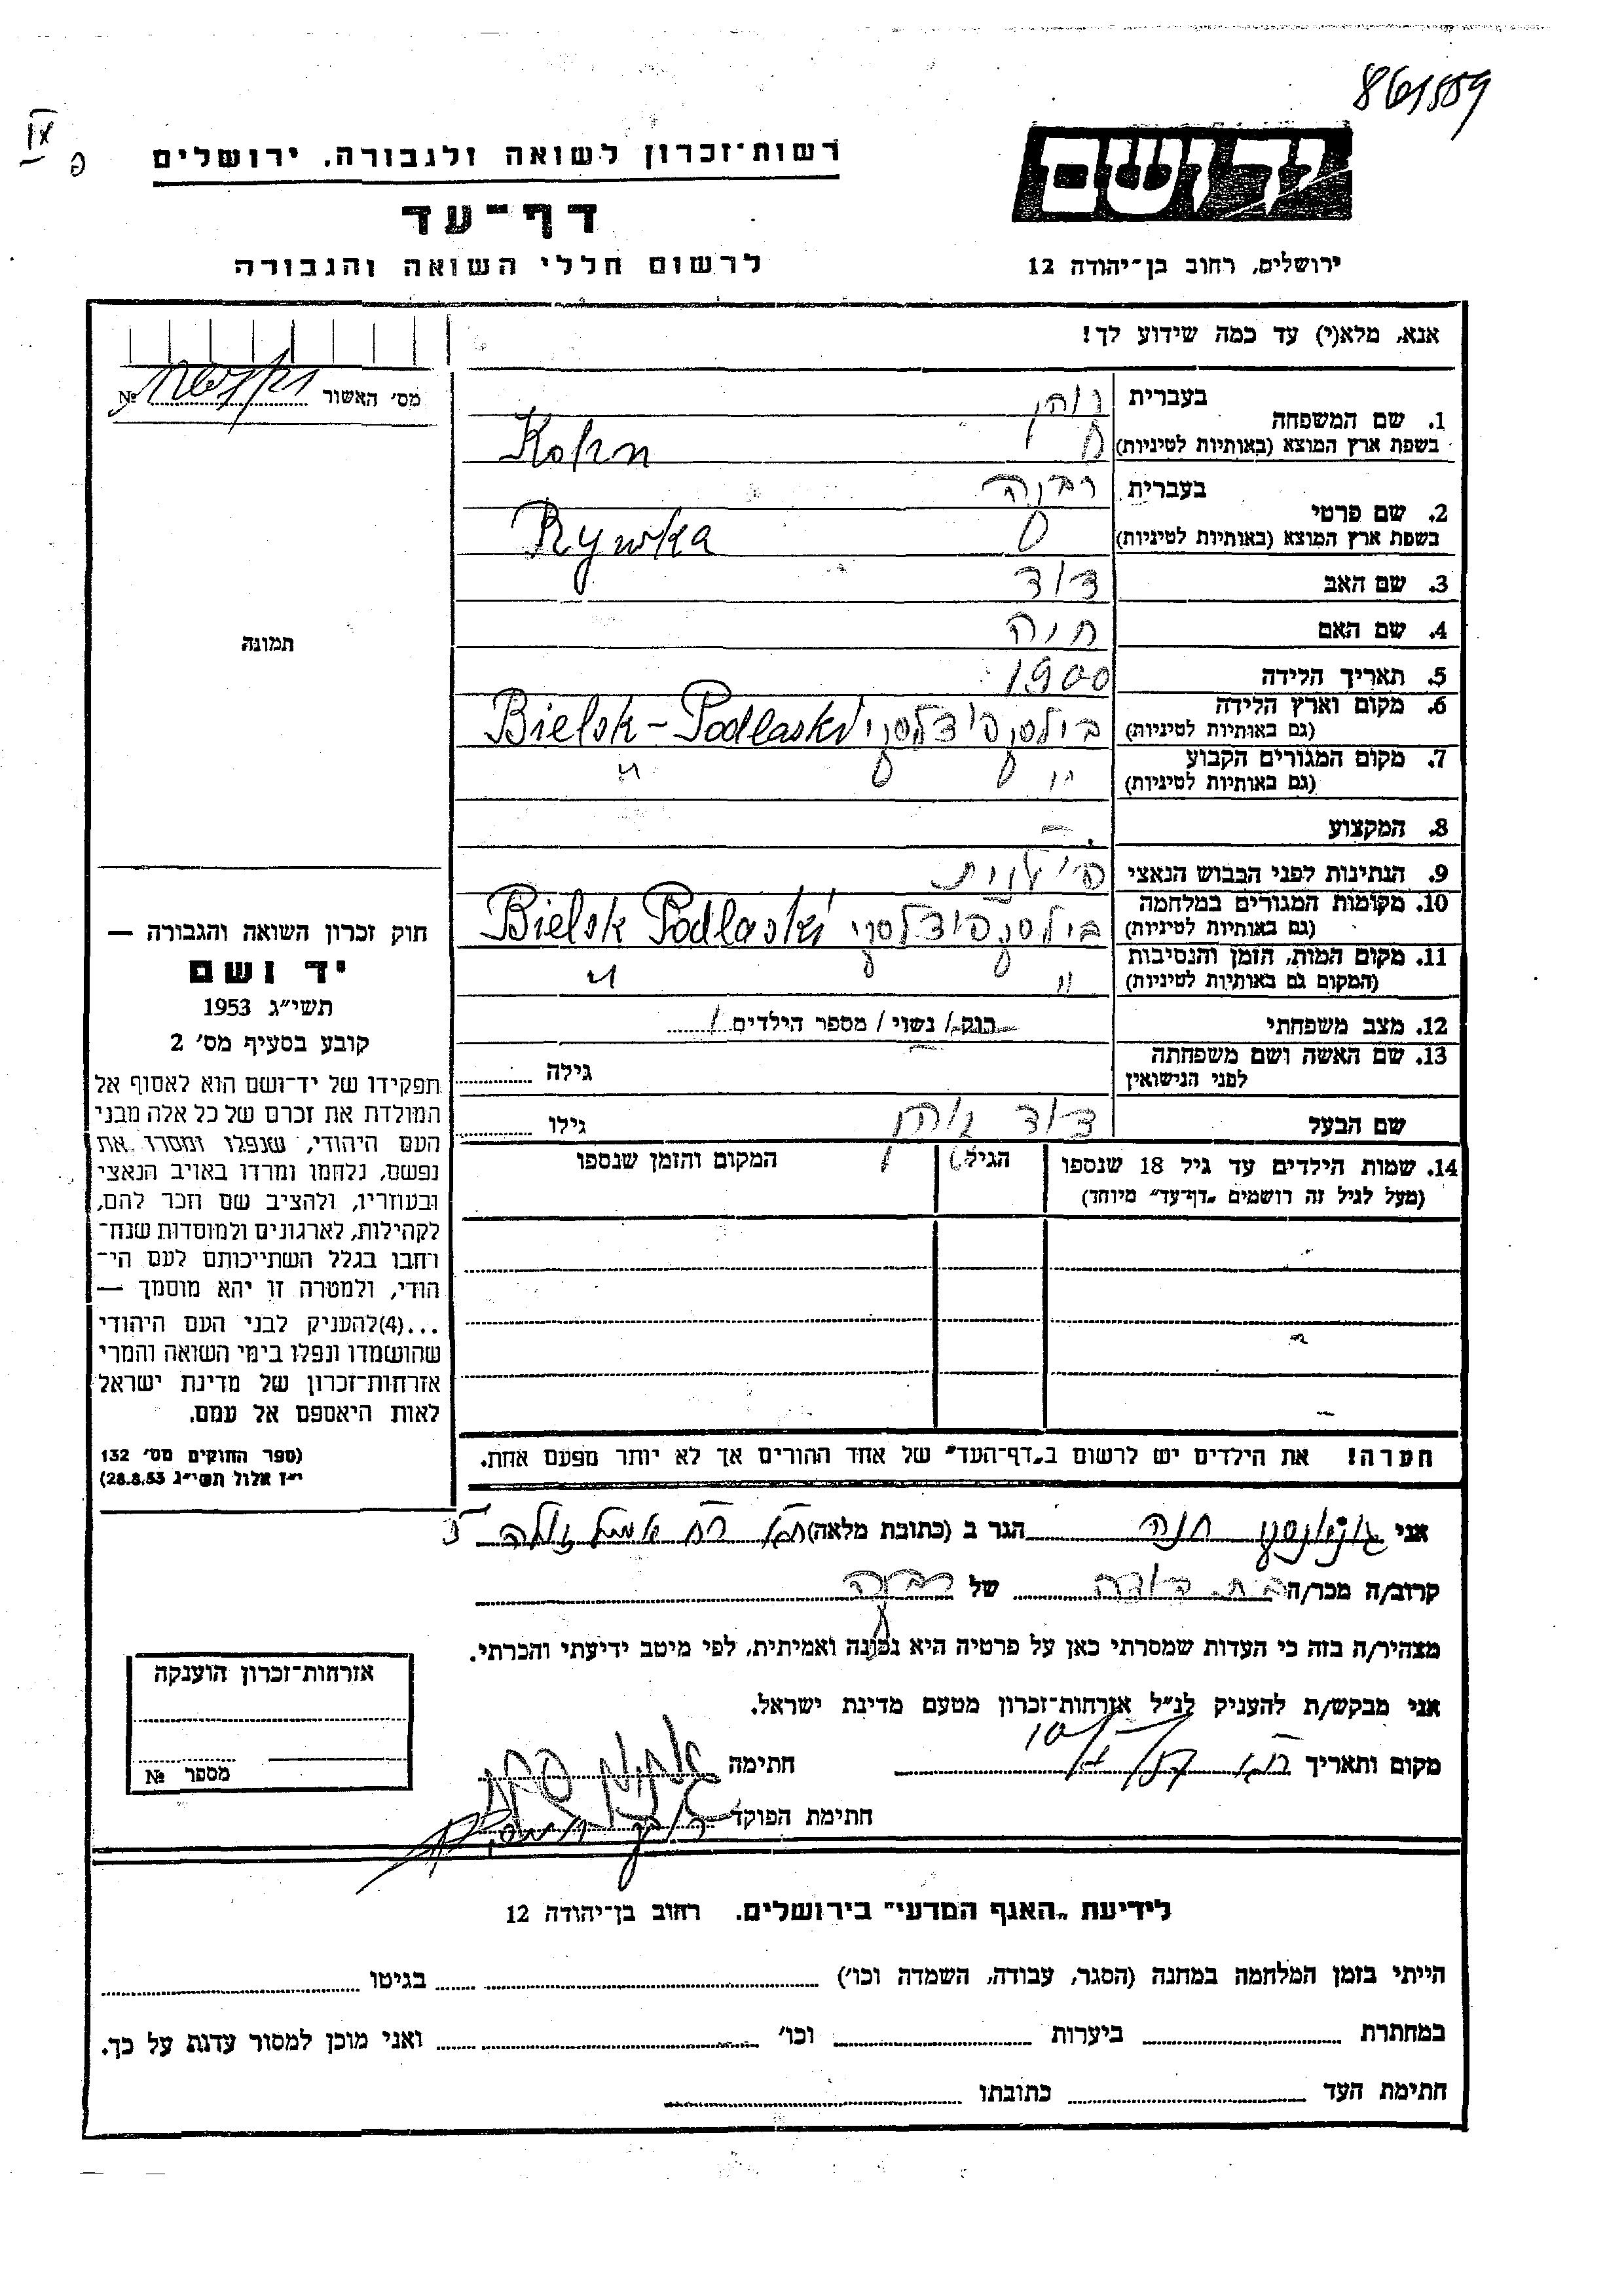 861559
רשות־זכרון לשואה ולגבורה, ירושלים
יד ושם
דף־עד
לרשום חללי השואה והגבורה
ירושלים, רחוב בן־יהודה 12
אנא, מלא(י) עד כמה שידוע לך!
מס׳ האשור № 
1. שם המשפחה
בעברית
בשפת ארץ המוצא (באותיות לטיניות)
Kohn
2. שם פרטי
בעברית רבקה
בשפת ארץ המוצא (באותיות לטיניות)
Rywka
3. שם האב דוד
4. שם האם חנה
5. תאריך הלידה 1900
6. מקום וארץ הלידה
(גם באותיות לטיניות)
בילסק פודלסקי Bielsk-Podlaski
7. מקום המגורים הקבוע
(גם באותיות לטיניות)
" "
8. המקצוע —
9. הנתינות לפני הכבוש הנאצי פולנית
10. מקומות המגורים במלחמה
(גם באותיות לטיניות)
בילסק פודלסקי Bielsk Podlaski
11. מקום המות, הזמן והנסיבות
(המקום גם באותיות לטיניות)
" "
12. מצב משפחתי
רוק/ נשוי / מספר הילדים
13. שם האשה ושם משפחתה
לפני הנישואין
גילה
שם הבעל דוד קוהן
גילו
14. שמות הילדים עד גיל 18 שנספו
(מעל לגיל זה רושמים „דף־עד" מיוחד)
הגיל
המקום והזמן שנספו
הערה! את הילדים יש לרשום ב„דף־העד" של אחד ההורים אך לא יותר מפעם אחת.
תמונה
חוק זכרון השואה והגבורה —
יד ושם
תשי״ג 1953
קובע בסעיף מס׳ 2
תפקידו של יד־ושם הוא לאסוף אל
המולדת את זכרם של כל אלה מבני
העם היהודי, שנפלו ומסרו את
נפשם, נלחמו ומרדו באויב הנאצי
ובעוזריו, ולהציב שם וזכר להם,
לקהילות, לארגונים ולמוסדות שנח־
רחבו בגלל השתייכותם לעם הי־
הודי, ולמטרה זו יהא מוסמך —
...(4)להעניק לבני העם היהודי
שהושמדו ונפלו בימי השואה והמרי
אזרחות־זכרון של מדינת ישראל
לאות היאספם אל עמם.
(ספר החוקים מס׳ 132
י״ז אלול תשי״ג 28.8.53)
אני חנה הגר ב (כתובת מלאה)
קרוב/ה מכר/ה בת דודה של רבקה
מצהיר/ה בזה כי העדות שמסרתי כאן על פרטיה היא נכונה ואמיתית, לפי מיטב ידיעתי והכרתי.
אני מבקש/ת להעניק לנ״ל אזרחות־זכרון מטעם מדינת ישראל.
מקום ותאריך
חתימה
חתימת הפוקד
אזרחות־זכרון הוענקה
מספר №
לידיעת „האגף המדעי" בירושלים. רחוב בן־יהודה 12
הייתי בזמן המלחמה במחנה (הסגר, עבודה, השמדה וכו׳) בגיטו
במחתרת ביערות וכו׳ ואני מוכן למסור עדות על כך.
חתימת העד כתובתו